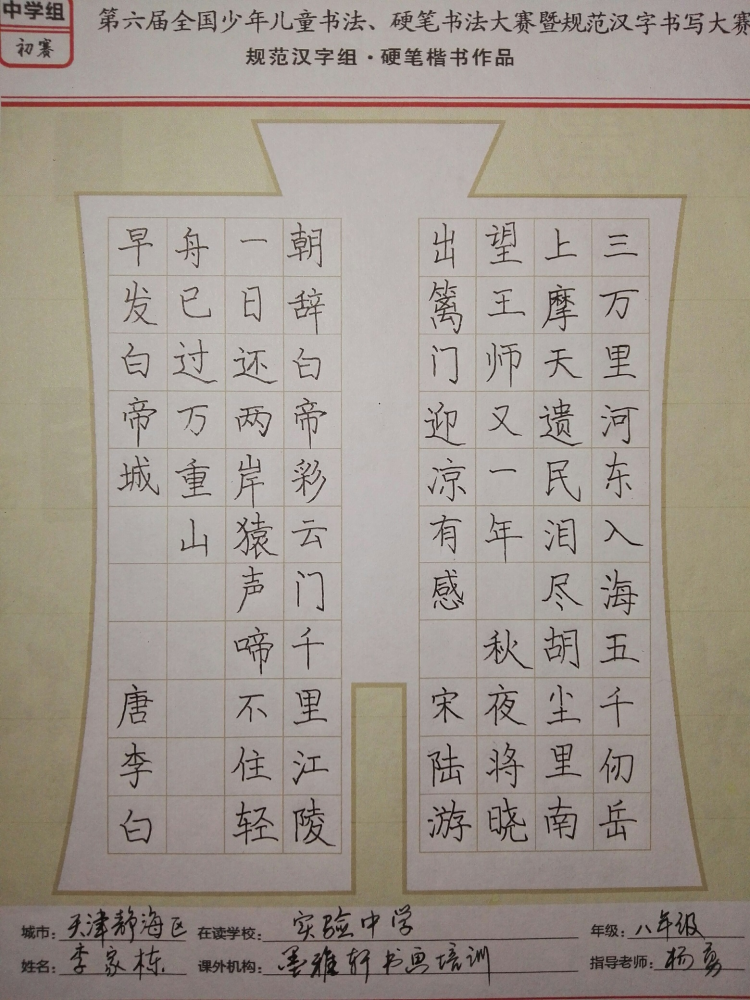 中学组
初赛
第六届全国少年儿童书法、硬笔书法大赛暨规范汉字书写大赛
规范汉字组·硬笔楷书作品
三万里河东入海五千仞岳
上摩天遗民泪尽胡尘里南
望王师又一年 秋夜将晓
出篱门迎凉有感 宋陆游
朝辞白帝彩云门千里江陵
一日还两岸猿声啼不住轻
舟已过万重山
早发白帝城 唐李白
城市:天津静海区 在读学校:实验中学 年级:八年级
姓名:李家栋 课外机构:墨雅轩书画培训 指导老师:杨勇